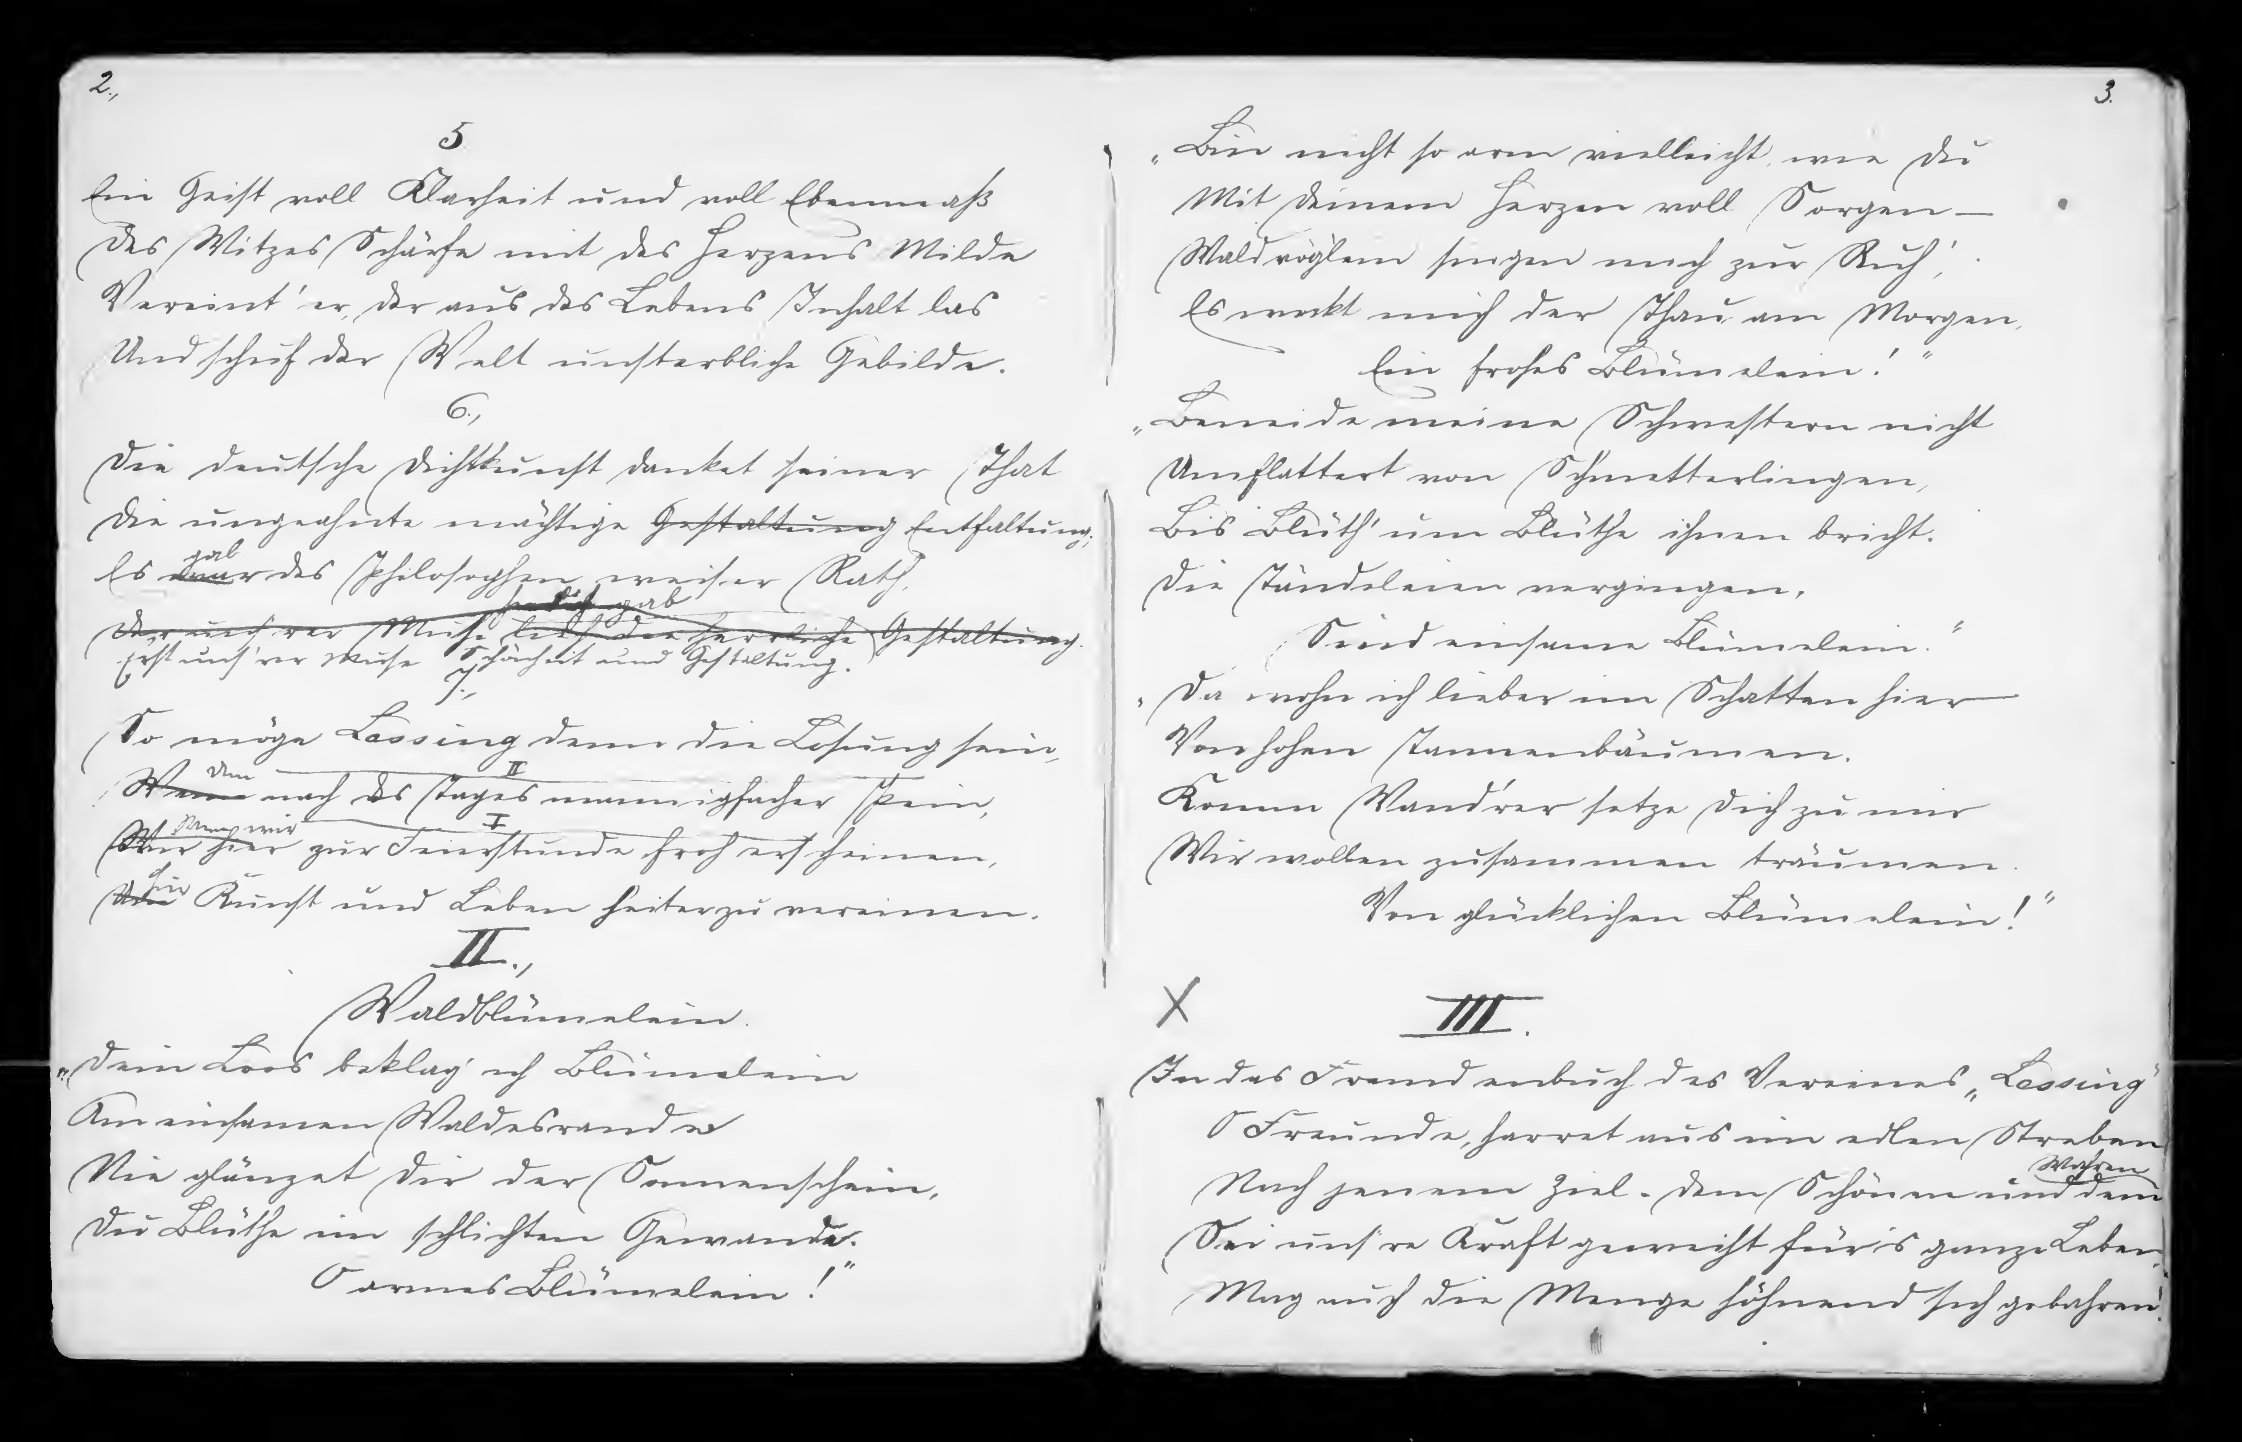 2.,
5
Ein Geist voll Klarheit und voll Ebenmaß
Des Witzes Schärfe mit des Herzens Milde
Vereint' er, der aus des Lebens Inhalt las
Und schuf der Welt unsterbliche Gebilde.
6.,
Die deutsche Dichtkunst danket seiner That
Die ungeahnte mächtige Gestaltung Entfaltung;
gab
Es war des Philosophen weiser Rath,
gab
Der uns'rer Muse lieh die herrliche Gestaltung.
Erst uns'rer Muse Schönheit und Gestaltung.
7.,
So möge Lessing denn die Losung sein,
Wenn nach des Tages mannigfacher Pein,
II
Wenn wir
I
Wir hier zur Feierstunde froh erscheinen,
Um Kunst und Leben heiter zu vereinen.
II.,
Waldblümelein.
„Dein Loos beklag' ich Blümelein
Am einsamen Waldesrande
Nie glänzet Dir der Sonnenschein,
Du Blüthe im schlichten Gewande.
O armes Blümelein!"
3.
„Bin nicht so arm vielleicht, wie Du
Mit Deinem Herzen voll Sorgen—
Waldvöglein singen mich zur Ruh',
Es weckt mich der Thau am Morgen,
Ein frohes Blümelein!"
„Beneide meine Schwestern nicht
Umflattert von Schmetterlingen,
Bis Blüth' um Blüthe ihnen bricht.
Die Tändeleien vergingen,
Sind einsame Blümelein."
„Da wohn ich lieber im Schatten hier
Von hohen Tannenbäumen.
Komm Wand'rer setze Dich zu mir
Wir wollen zusammen träumen.
Von glücklichen Blümelein!"
X
III.
In das Fremdenbuch des Vereines „Lessing"
O Freunde, harret aus im edlen Streben
Nach jenem Ziel. Dem Schönen und dem
Wahren
Sei uns're Kraft geweiht für's ganze Leben,
Mag auch die Menge höhnend sich gebahren!